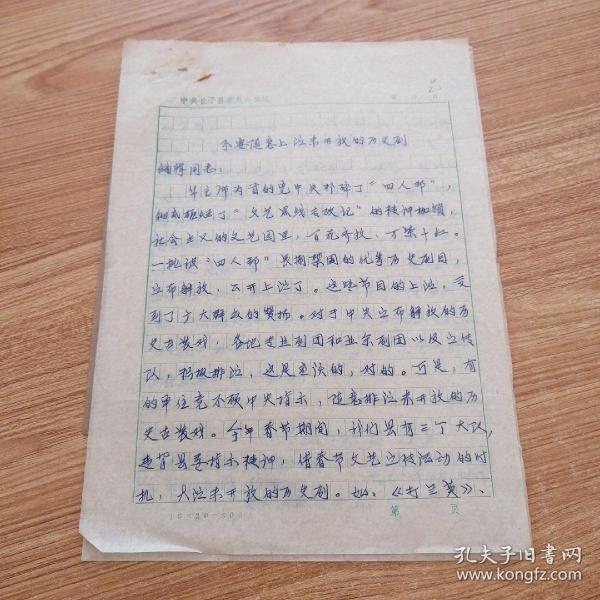 中共长子县委
第 页
不要随意上演未开放的历史剧
编辑同志:
华主席为首的党中央粉碎了“四人帮”,
彻底砸烂了“文艺黑线专政论”的精神枷锁,
社会主义的文艺园里,百花齐放,万紫千红。
一批被“四人帮”长期禁固的优秀历史剧目,
宣布解放,公开上演了。这些节目的上演,受
到了广大群众的赞扬。对于中央宣布解放的历
史古装戏,各地专业剧团和业余剧团以及宣传
队,积极排演,这是应该的,对的。可是,有
的单位竟不顾中央指示,随意排演未开放的历
史古装戏。今年春节期间,我们县有三个大队,
违背县委指示精神,借春节文艺宣传活动的时
机,大演未开放的历史剧。如:《打兰英》、
15×20=300
第 页
孔夫子旧书网
www.kongfz.com